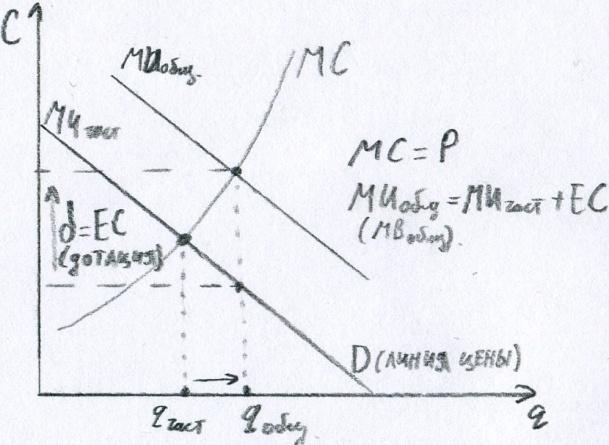 C
МИобщ.
MC
МИчаст
MC = P
МИобщ = МИчаст + EC
(MBобщ).
d = EC
(ДОТАЦИЯ)
D (ЛИНИЯ ЦЕНЫ)
qчаст
qобщ
q